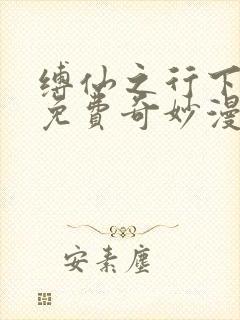 缚仙之行下
免费奇妙漫
安素尘